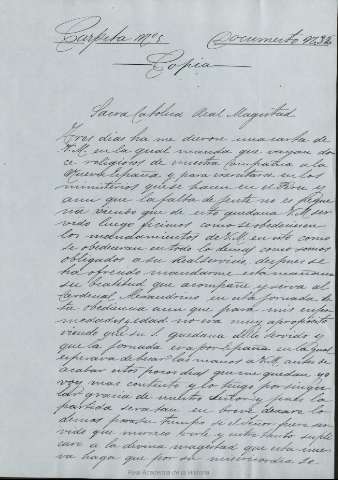 Carpeta nº 5 Documento nº 32
Copia
Sacra Catolica Real Magestad.
Tres dias ha me dieron una carta de
V.M. en la qual manda que vayan do
ce religiosos de nuestra Compañia a la
Nueva España y para exercitarse en los
ministerios que se hacen en el Piru y
aun que la falta de gente no es peque
ña viendo que de esto quedaria V.M. ser
vido luego hicimos como se obedeciesen
los mandamientos de V.M. en esto como
se obedeceran en todo lo demas como somos
obligados a su Real servicio, despues se
ha ofrecido mandarme esta mañana
su beatitud que acompañe y serva al
Cardenal Alexandrino en esta jornada de
tu obediencia aun que para mis enfer
medades y edad no era muy aproposito
viendo que su S. quedaria dello servido y
que la jornada era por España en la qual
esperava de besar las manos a V.M. antes de
acabar estos pocos dias que me quedan yo
voy mas contento y lo tengo por singu
lar gracia de nuestro Señor y pues la
partida sera tan en breve dexare lo
demas para tiempo si el Señor fuere ser
vido que merezca verle y entre tanto supli
care a la divina magestad que esta nue
va haga que por su misericordia se
Real Academia de la Historia